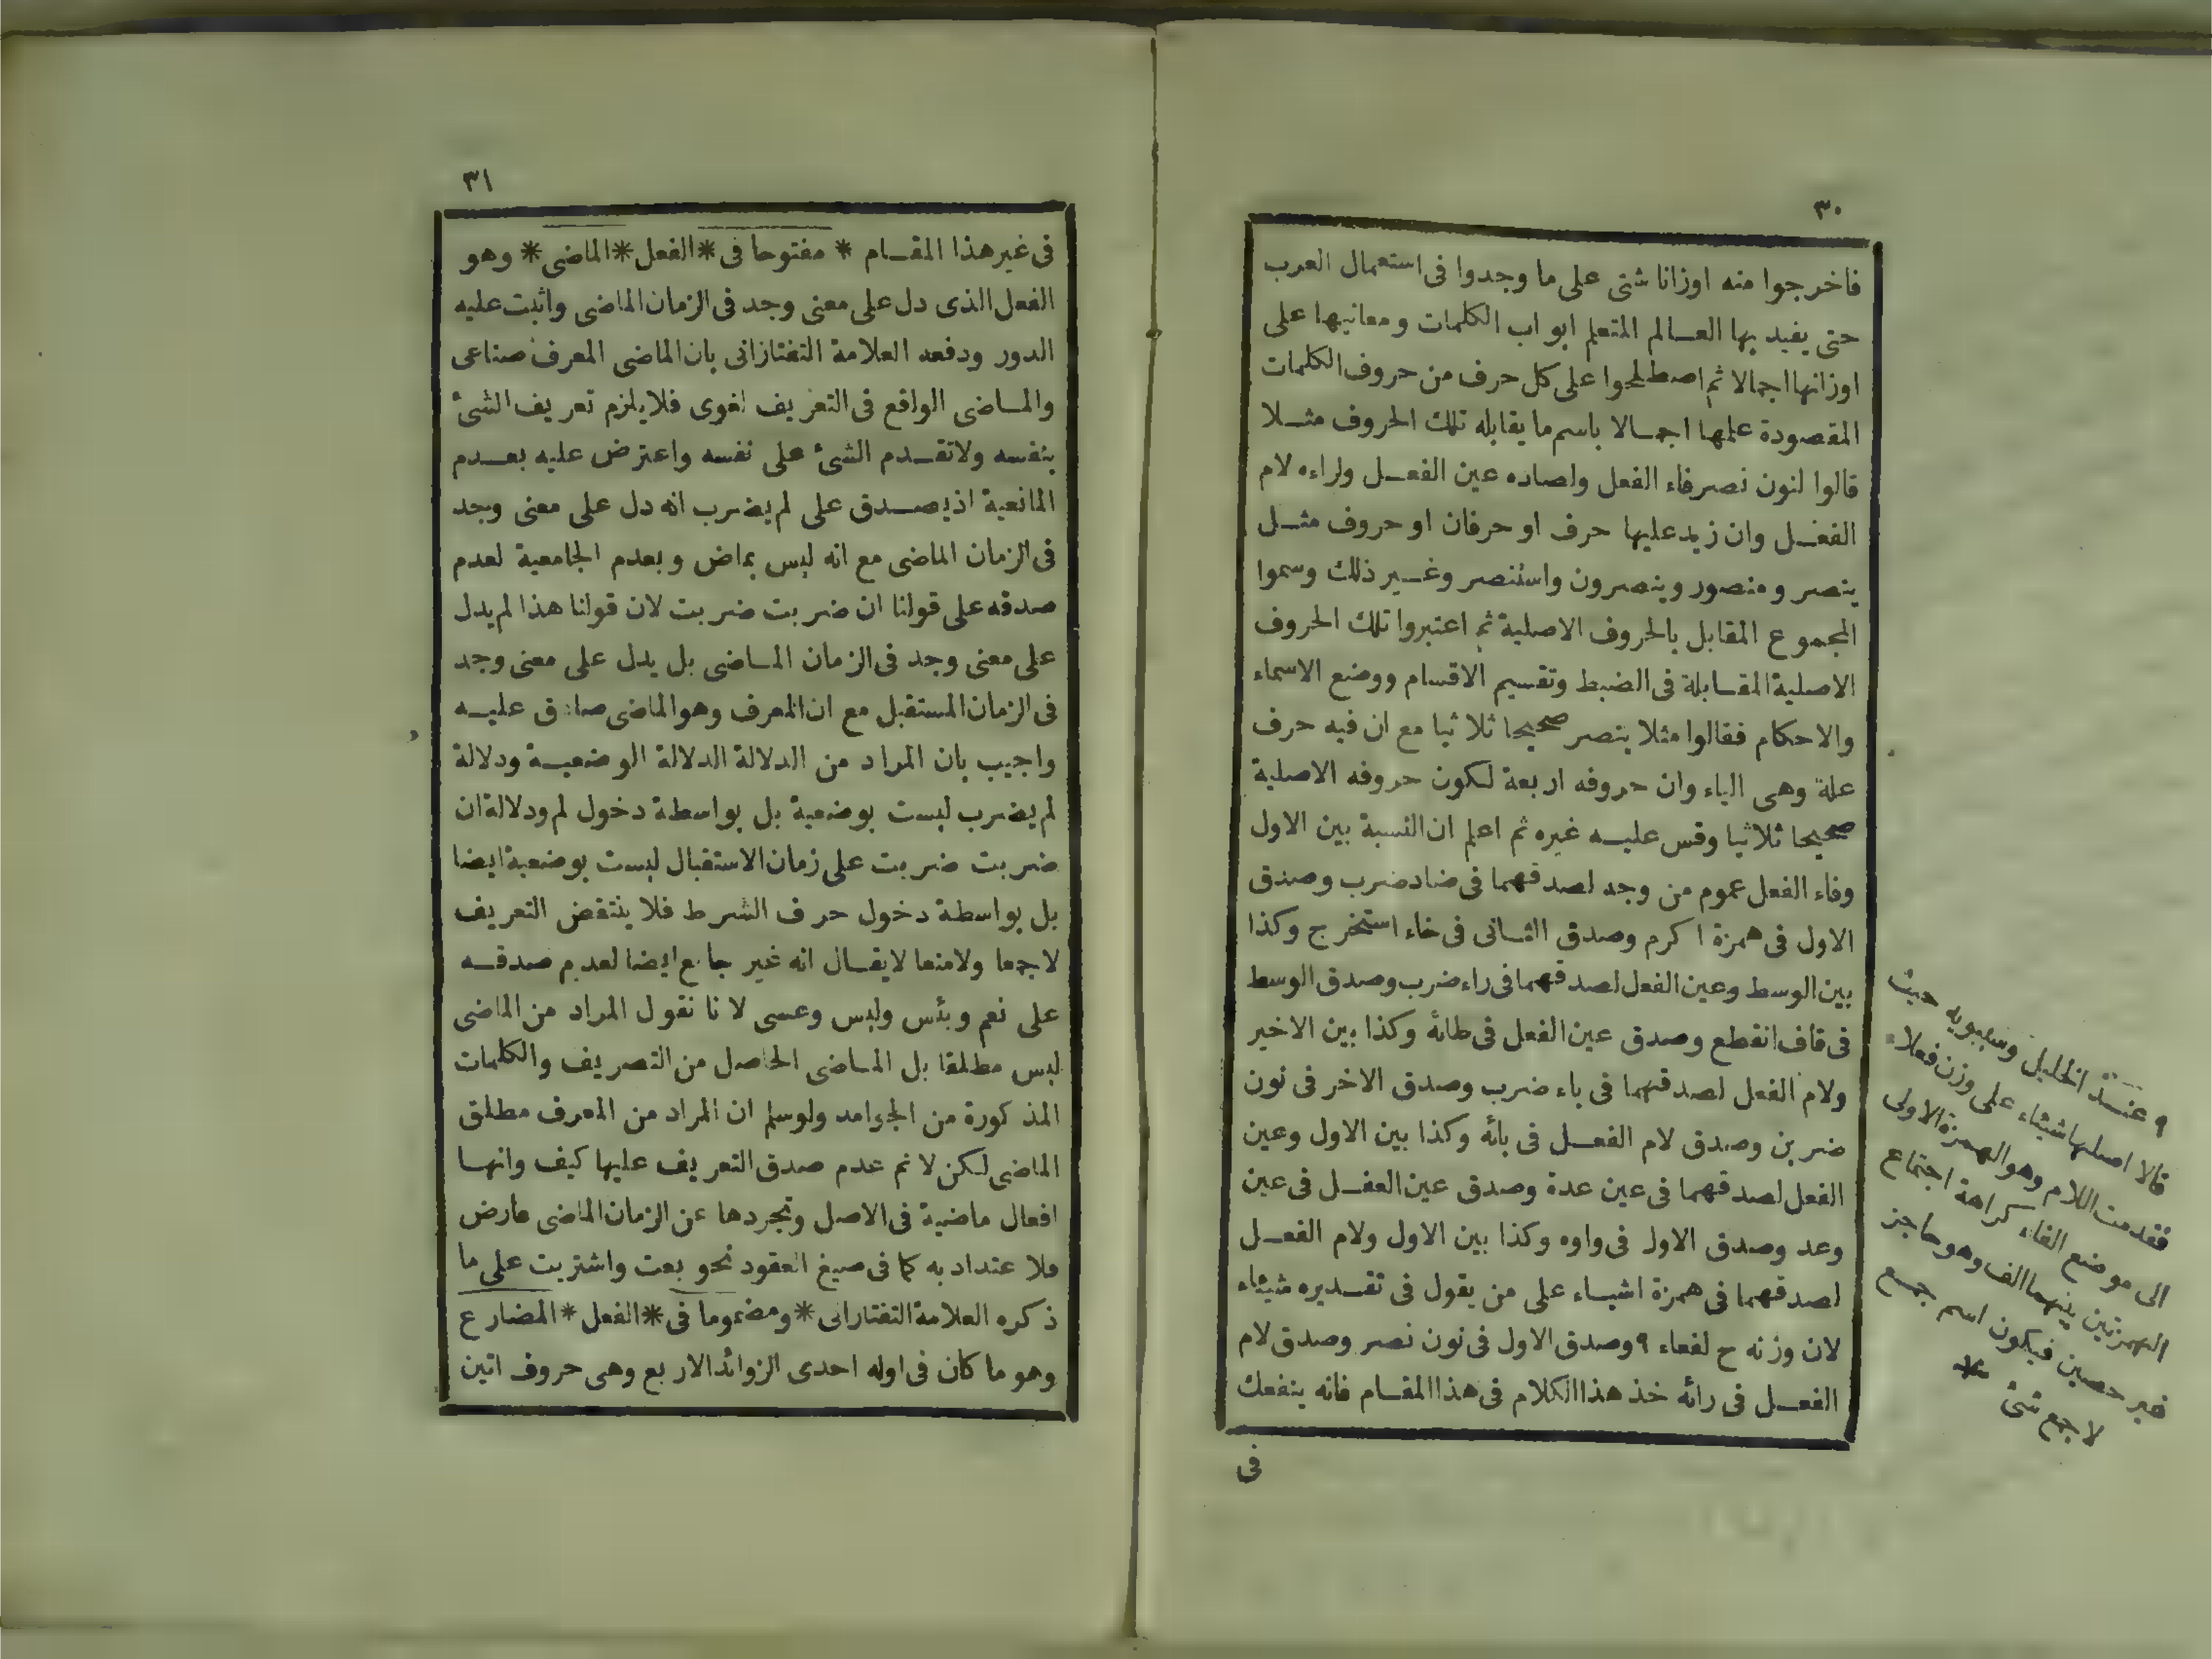 ٣٠
فاخرجوا منه اوزانا شتى على ما وجدوا فى استعمال العرب
حتى يفيد بها العالم المتعلم ابواب الكلمات ومعانيها على
اوزانها اجمالا ثم اصطلحوا على كل حرف من حروف الكلمات
المقصودة علمها اجمالا باسم ما يقابله تلك الحروف مثلا
قالوا لنون نصر فاء الفعل ولصاده عين الفعل ولراءه لام
الفعل وان زيد عليها حرف او حرفان او حروف مثل
ينصر ومنصور وينصرون واستنصر وغير ذلك وسموا
المجموع المقابل بالحروف الاصلية ثم اعتبروا تلك الحروف
الاصلية المقابلة فى الضبط وتقسيم الاقسام ووضع الاسماء
والاحكام فقالوا مثلا ينصر صحيحا ثلاثيا مع ان فيه حرف
علة وهى الياء وان حروفه اربعة لكون حروفه الاصلية
صحيحا ثلاثيا وقس عليه غيره ثم اعلم ان النسبة بين الاول
وفاء الفعل عموم من وجه لصدقهما فى ضاد ضرب وصدق
الاول فى همزة اكرم وصدق الثانى فى خاء استخرج وكذا
بين الوسط وعين الفعل لصدقهما فى راء ضرب وصدق الوسط
فى قاف انقطع وصدق عين الفعل فى طائه وكذا بين الاخير
ولام الفعل لصدقهما فى باء ضرب وصدق الاخر فى نون
ضربن وصدق لام الفعل فى بائه وكذا بين الاول وعين
الفعل لصدقهما فى عين عدة وصدق عين الفعل فى عين
وعد وصدق الاول فى واوه وكذا بين الاول ولام الفعل
لصدقهما فى همزة اشياء على من يقول فى تقديره شيئاء
لان وزنه ح لفعاء ٩ وصدق الاول فى نون نصر وصدق لام
الفعل فى رائه خذ هذا الكلام فى هذا المقام فانه ينفعك
فى
٩ عند الخليل وسيبويه حيث
قالا اصلها شيئاء على وزن فعلاء
فقدمت اللام وهو الهمزة الاولى
الى موضع الفاء كراهة اجتماع
الهمزتين بينهما الف وهو حاجز
غير حصين فيكون اسم جمع
لا جمع شئ *
٣١
فى غير هذا المقام * مفتوحا فى * الفعل * الماضى * وهو
الفعل الذى دل على معنى وجد فى الزمان الماضى واثبت عليه
الدور ودفعه العلامة التفتازانى بان الماضى المعرف صناعى
والماضى الواقع فى التعريف لغوى فلا يلزم تعريف الشئ
بنفسه ولا تقدم الشئ على نفسه واعترض عليه بعدم
المانعية اذ يصدق على لم يضرب انه دل على معنى وجد
فى الزمان الماضى مع انه ليس بماض وبعدم الجامعية لعدم
صدقه على قولنا ان ضربت ضربت لان قولنا هذا لم يدل
على معنى وجد فى الزمان الماضى بل يدل على معنى وجد
فى الزمان المستقبل مع ان المعرف وهو الماضى صادق عليه
واجيب بان المراد من الدلالة الدلالة الوضعية ودلالة
لم يضرب ليست بوضعية بل بواسطة دخول لم ودلالة ان
ضربت ضربت على زمان الاستقبال ليست بوضعية ايضا
بل بواسطة دخول حرف الشرط فلا ينتقض التعريف
لا جمعا ولا منعا لا يقال انه غير جامع ايضا لعدم صدقه
على نعم وبئس وليس وعسى لانا نقول المراد من الماضى
ليس مطلقا بل الماضى الحاصل من التصريف والكلمات
المذكورة من الجوامد ولو سلم ان المراد من المعرف مطلق
الماضى لكن لا نم عدم صدق التعريف عليها كيف وانها
افعال ماضية فى الاصل وتجردها عن الزمان الماضى عارض
فلا عتداد به كما فى صيغ العقود نحو بعت واشتريت على ما
ذكره العلامة التفتازانى * ومضموما فى * الفعل * المضارع
وهو ما كان فى اوله احدى الزوائد الاربع وهى حروف اتين